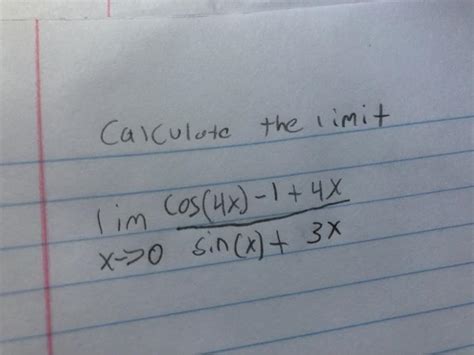 Calculate the limit
lim cos(4x)-1+4x
x->0 sin(x)+ 3x